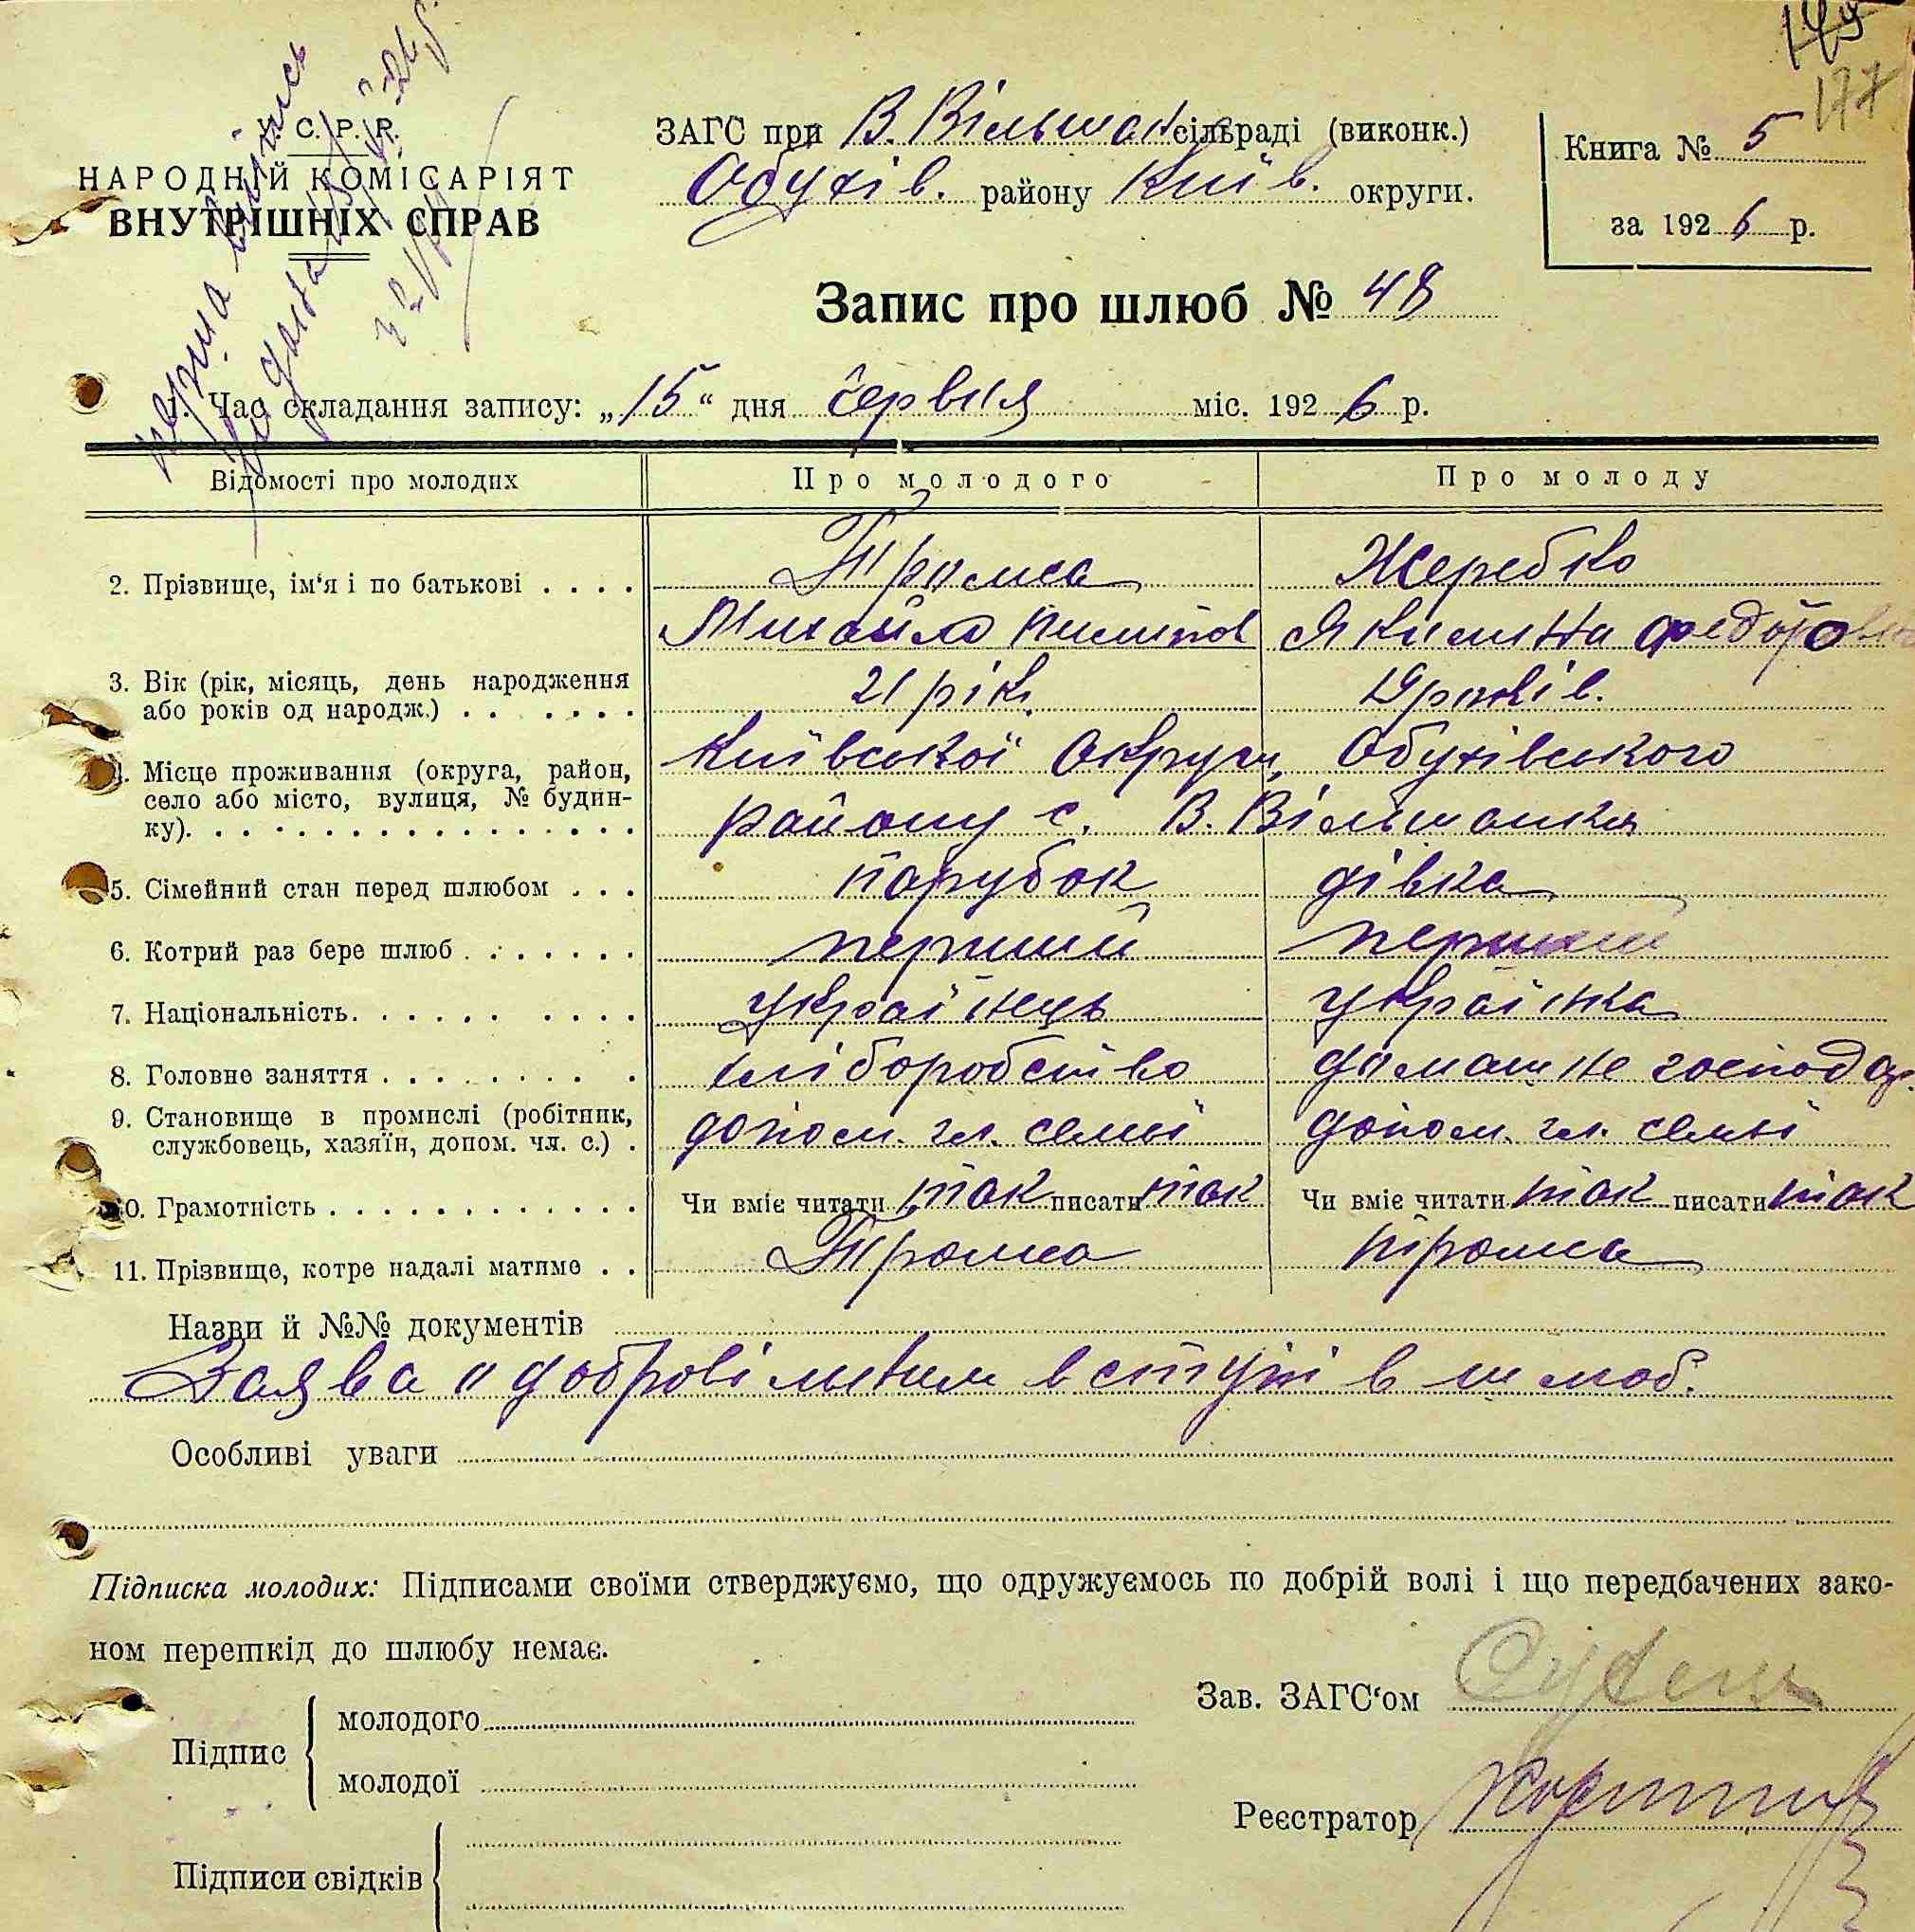 149
177
С. Р. Р.
НАРОДНІЙ КОМІСАРІЯТ
ВНУТРІШНІХ СПРАВ
ЗАГС при В. Вільшан сільраді (виконк.)
Обухів. району Київ. округи.
Книга № 5
за 1926 р.
Запис про шлюб № 48
1. Час складання запису: „15“ дня червня міс. 1926 р.
Відомості про молодих Про молодого Про молоду
2. Прізвище, ім‘я і по батькові . . . . Трома Жеребко
Михайло Пилипов Якилина Федоровна
3. Вік (рік, місяць, день народження
або років од народж.) . . . . . . 21 рік. 19 років.
4. Місце проживання (округа, район, Київської Округи, Обухівського
село або місто, вулиця, № будин-
ку). . . . . . . . . . . . . . . . району с. В. Вільшанка
5. Сімейний стан перед шлюбом . . . парубок дівка
6. Котрий раз бере шлюб . . . . . . . перший перший
7. Національність. . . . . . . . . . українець українка
8. Головне заняття . . . . . . . . . хліборобство домашнє господар.
9. Становище в промислі (робітник,
службовець, хазяїн, допом. чл. с.) . допом. чл. семьї допом. чл. семьї
10. Грамотність . . . . . . . . . . . . . Чи вміє читати так писати так Чи вміє читати так писати так
11. Прізвище, котре надалі матиме . . Трома Трома
Назви й №№ документів
Заява о добровільнім вступі в шлюб.
Особливі уваги
Підписка молодих: Підписами своїми стверджуємо, що одружуємось по добрій волі і що передбачених зако-
ном перешкід до шлюбу немає.
Зав. ЗАГС‘ом
Підпис
молодого
молодої
Реєстратор
Підписи свідків